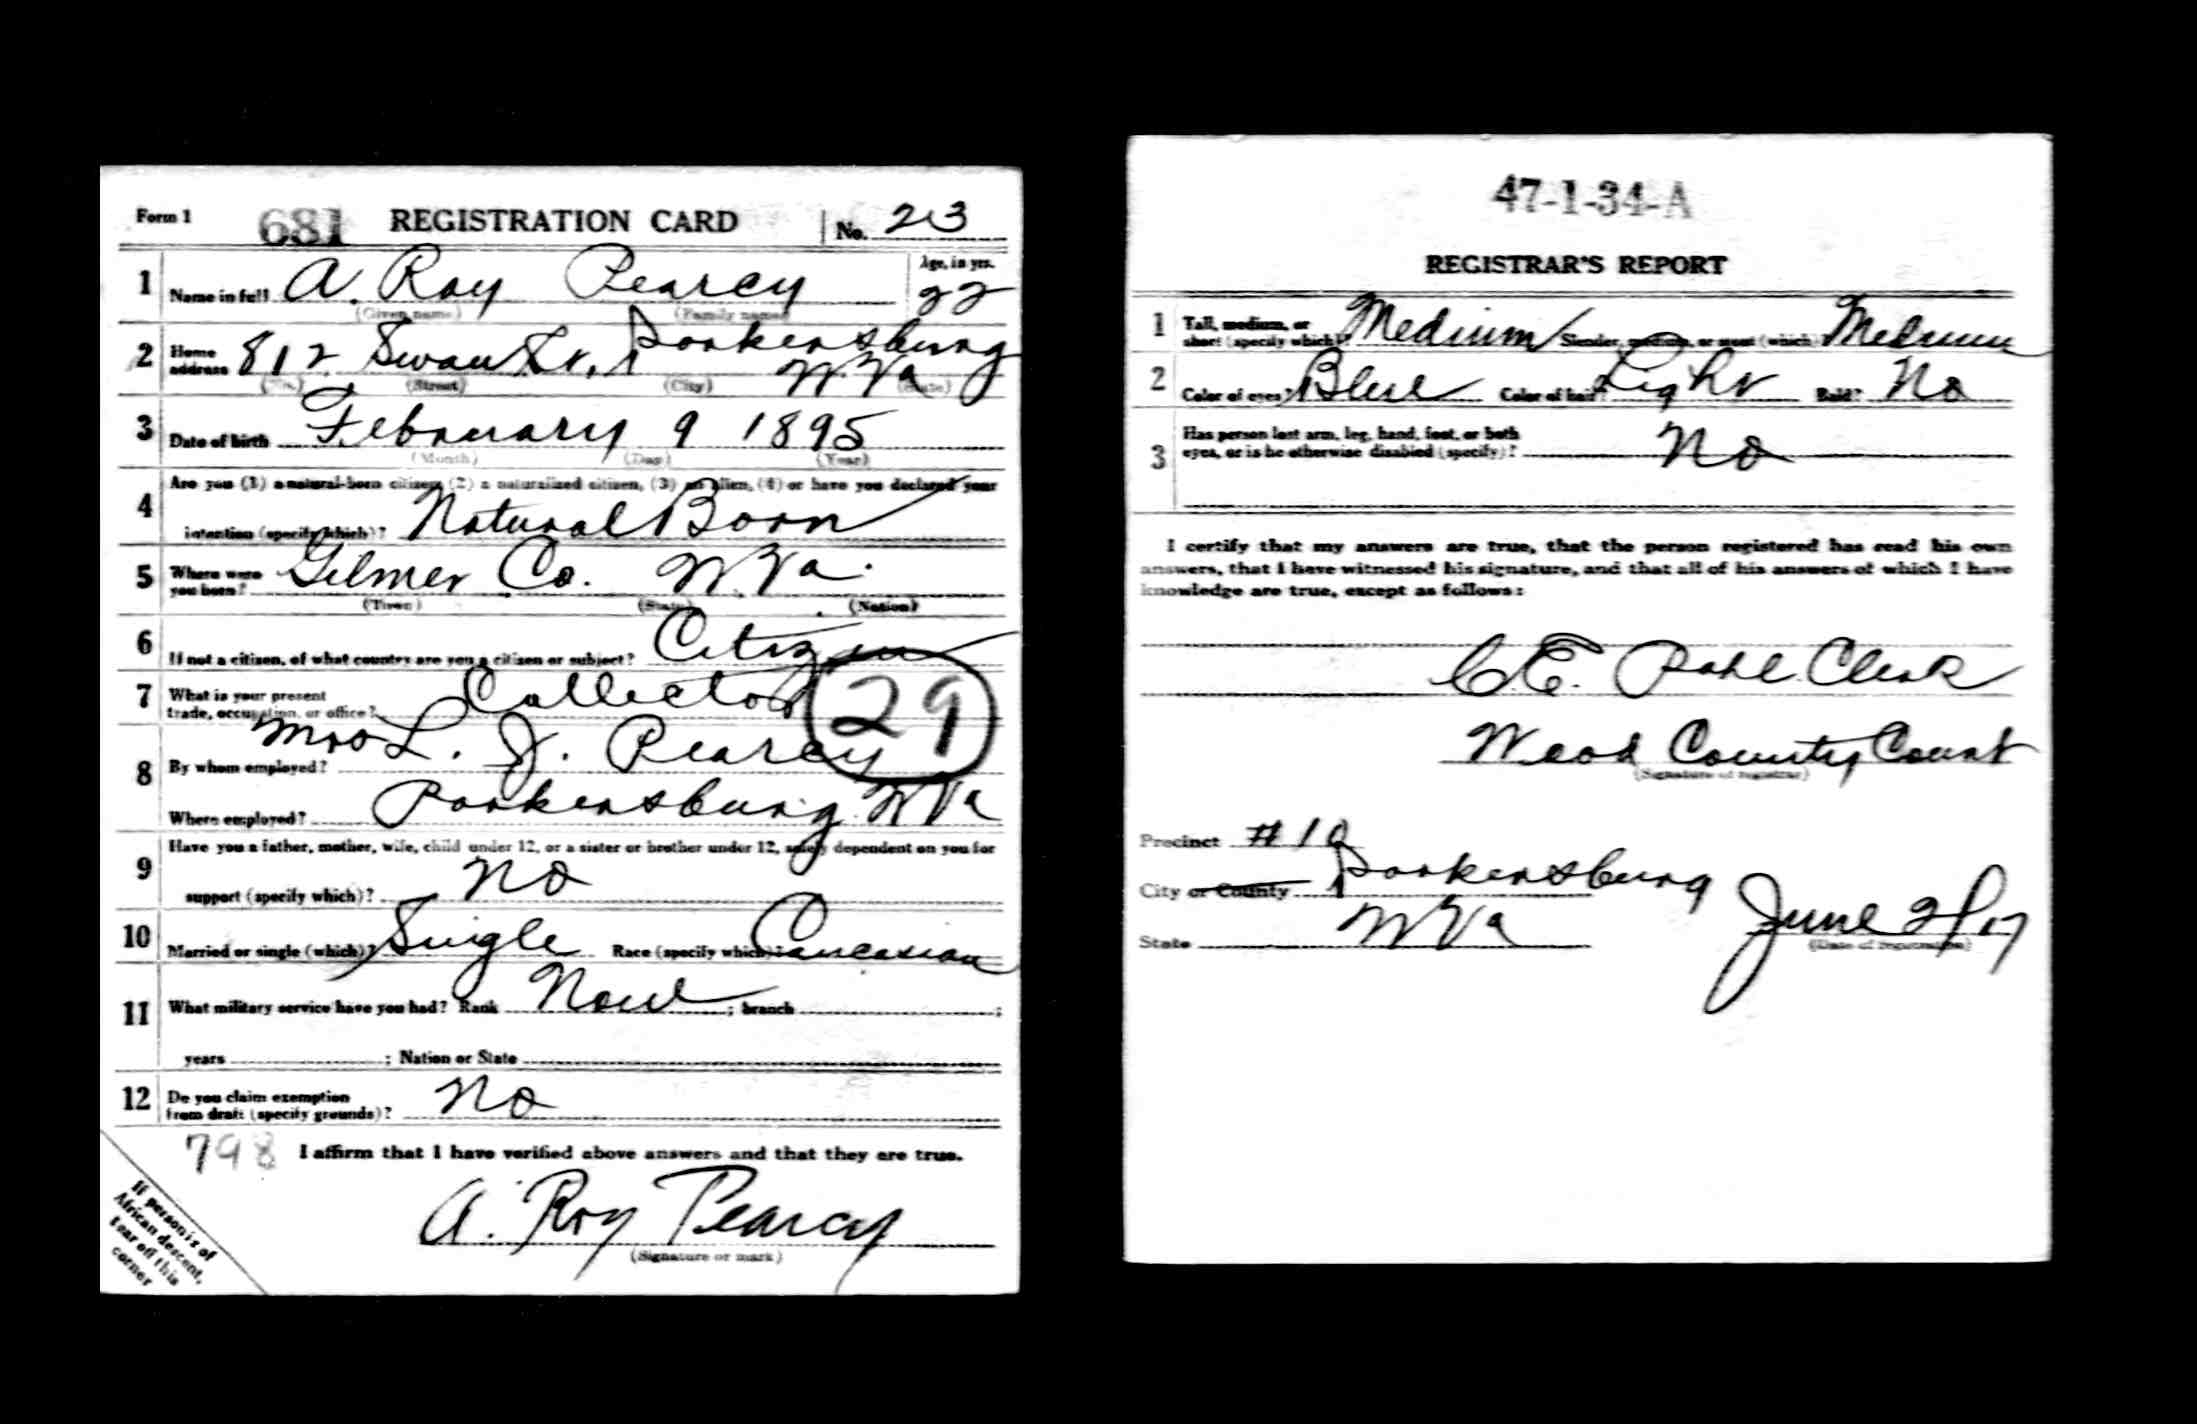 Form 1 681 REGISTRATION CARD No. 213
1 Name in full A. Roy Pearcy Age, in yrs. 22
(Given name) (Family name)
2 Home address 812 Swan St., Parkersburg W Va
(No.) (Street) (City) (State)
3 Date of birth February 9 1895
(Month) (Day) (Year)
4 Are you (1) a natural-born citizen, (2) a naturalized citizen, (3) an alien, (4) or have you declared your
intention (specify which)? Natural Born
5 Where were you born? Gilmer Co. W. Va.
(Town) (State) (Nation)
6 If not a citizen, of what country are you a citizen or subject? Citizen
7 What is your present
trade, occupation, or office? Collector 29
8 By whom employed? Mrs L. J. Pearcy
Where employed? Parkersburg W Va
9 Have you a father, mother, wife, child under 12, or a sister or brother under 12, solely dependent on you for
support (specify which)? No
10 Married or single (which)? Single Race (specify which)? Caucasian
11 What military service have you had? Rank None ; branch ;
years ; Nation or State
12 Do you claim exemption
from draft (specify grounds)? No
798 I affirm that I have verified above answers and that they are true.
A. Roy Pearcy
(Signature or mark)
If person is of
African descent,
tear off this
corner
47-1-34-A
REGISTRAR'S REPORT
1 Tall, medium, or
short (specify which)? Medium Slender, medium, or stout (which)? Medium
2 Color of eyes? Blue Color of hair? Light Bald? No
3 Has person lost arm, leg, hand, foot, or both
eyes, or is he otherwise disabled (specify)? No
I certify that my answers are true, that the person registered has read his own
answers, that I have witnessed his signature, and that all of his answers of which I have
knowledge are true, except as follows:
C. E. Clerk
Wood County Court
(Signature of registrar)
Precinct #10
City or County Parkersburg
State W Va June 2/17
(Date of registration)